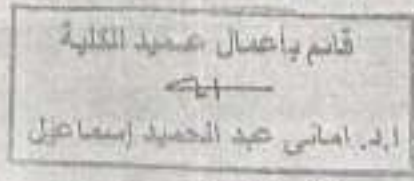 قائم بأعمال عميد الكلية
ا.د. امانى عبد الحميد إسماعيل